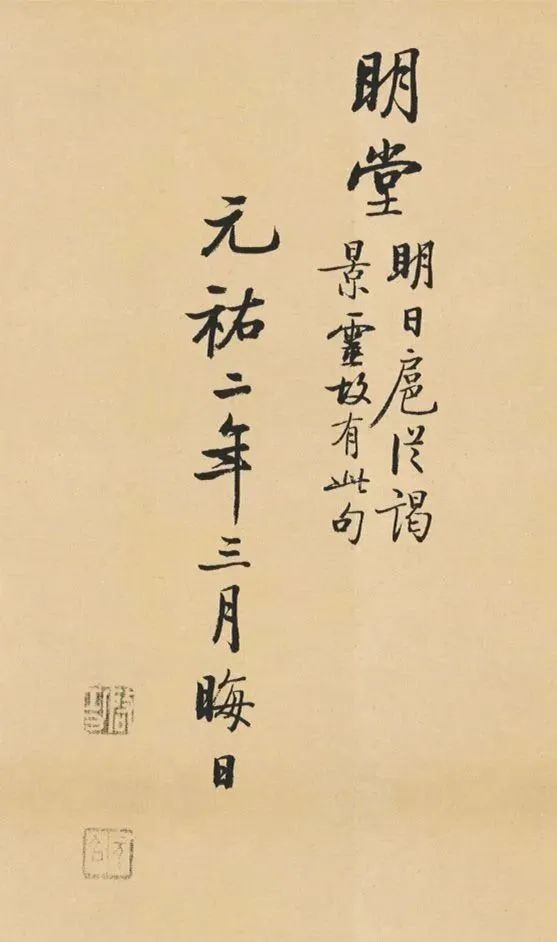 明堂
明日扈從謁
景靈故有此句
元祐二年三月晦日